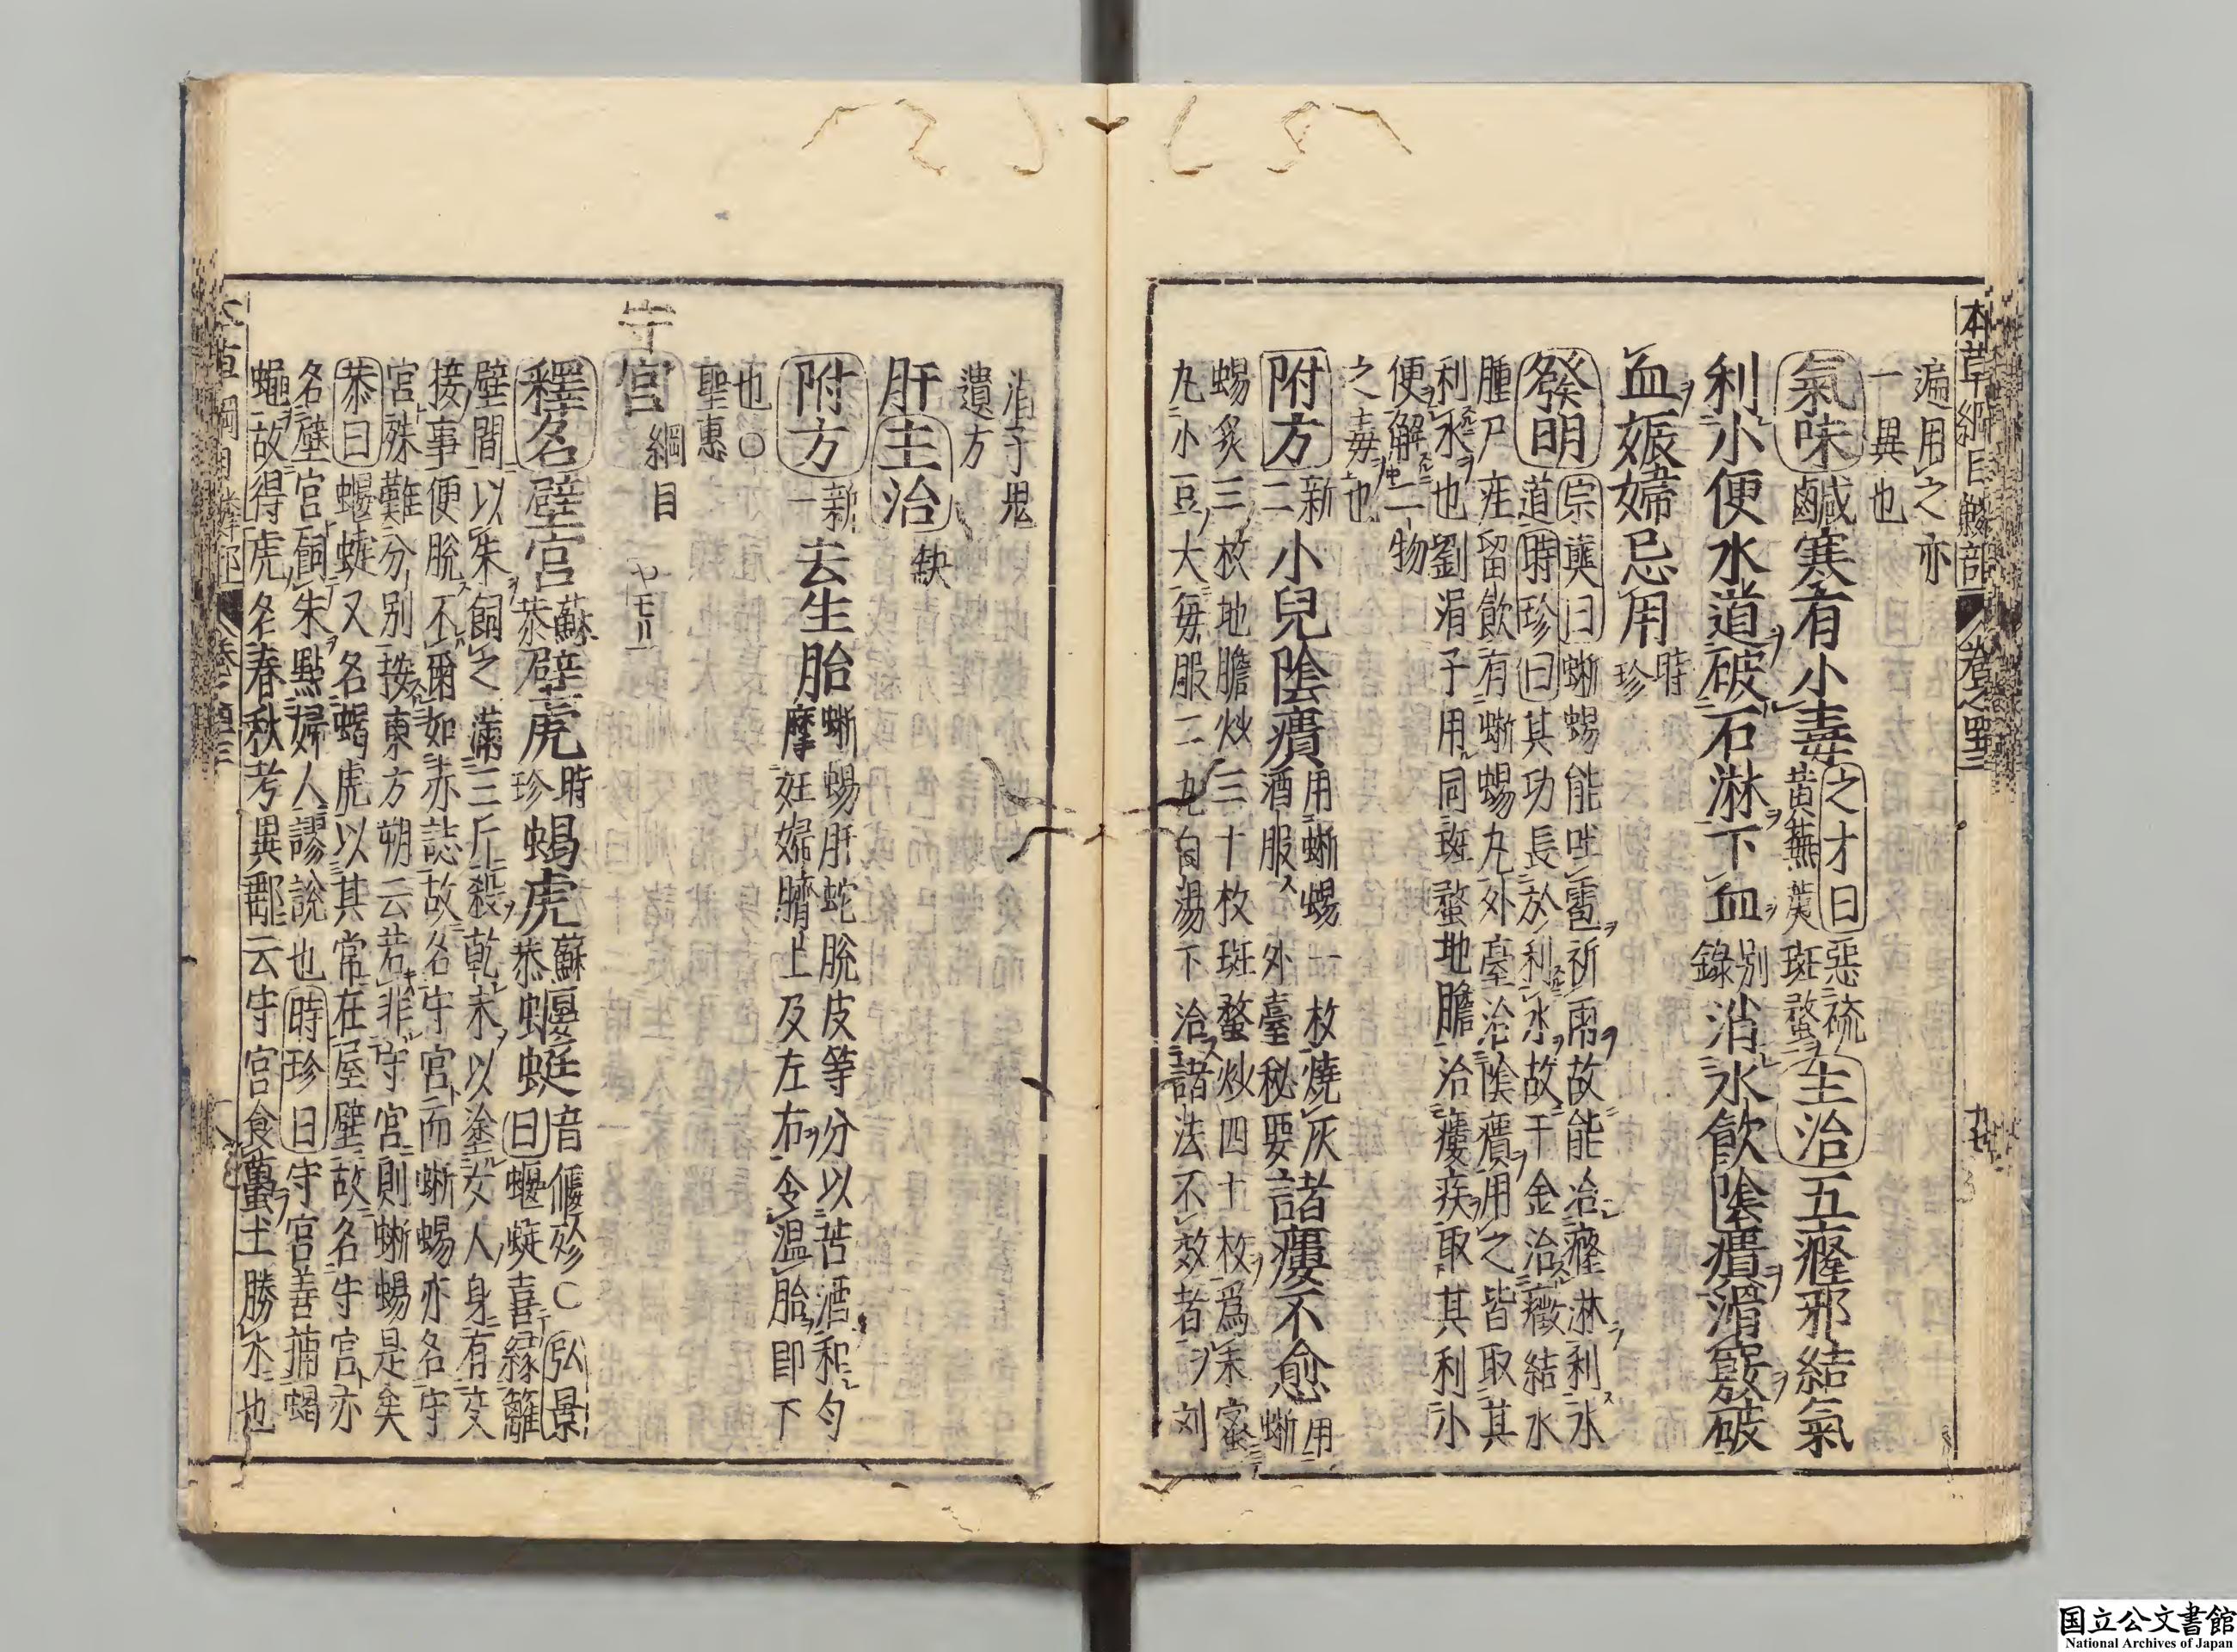 本草綱目鱗部 卷之四十三
遍用之亦
一異也
氣味鹹寒有小毒之才曰惡硫黃蕪荑斑蝥主治五癃邪結氣
利小便水道破石淋下血別錄消水飲陰㿉滑竅破
血娠婦忌用時珍
發明宗奭曰蜥蜴能吐雹祈雨故能治癃淋利水
道時珍曰其功長於利水故千金治癥結水
腫尸疰留飲有蜥蜴丸外臺治陰㿉用之皆取其
利水也劉涓子用同斑蝥地膽治瘻疾取其利小
便解二物
之毒也
附方新二小兒陰㿉用蜥蜴一枚燒灰酒服外臺秘要諸瘻不愈用蜥
蜴炙三枚地膽炒三十枚斑蝥炒四十枚爲末蜜
丸小豆大每服二丸白湯下治諸法不效者刘
涓子鬼
遺方
肝主治缺
附方新一去生胎蜥蜴肝蛇脫皮等分以苦酒和勻
摩妊婦臍上及左右令温胎即下
也○
聖惠
守宮綱目 ヤモリ
釋名壁宮蘇恭壁虎時珍蝎虎蘇恭蝘蜓音偃殄○弘景
曰蝘蜓喜緣籬
壁間以朱飼之滿三斤殺乾末以塗女人身有交
接事便脫不爾如赤誌故名守宮而蜥蜴亦名守
宮殊難分別按東方朔云若非守宮則蜥蜴是矣
恭曰蝘蜓又名蝎虎以其常在屋壁故名守宮亦
名壁宮飼朱點婦人謬說也時珍曰守宮善捕蝎
蠅故得虎名春秋考異郵云守宮食蠆土勝水也
本草綱目鱗部
国立公文書館
National Archives of Japan